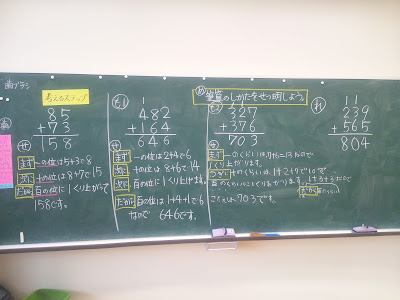 歯ブラシ
考えるステップ
め 筆算のしかたをせつ明しよう。
85
+73
158
まず 一の位は5+3で8
次に 十の位は8+7で15
百の位に1くり上がって
158です。
1
482
+164
646
まず 一の位は2+4で6
次に 十の位は8+6で14
次に 百の位に1くり上げます。
だから 百の位は1+4+1で6
なので 646です。
327
+376
703
まず 一のくらいは
くり上がります。
十のくらいは、1+2+7で10で
百のくらいに1くり上がります。1+3+3なので
こたえは703です。
1 1
239
+565
804